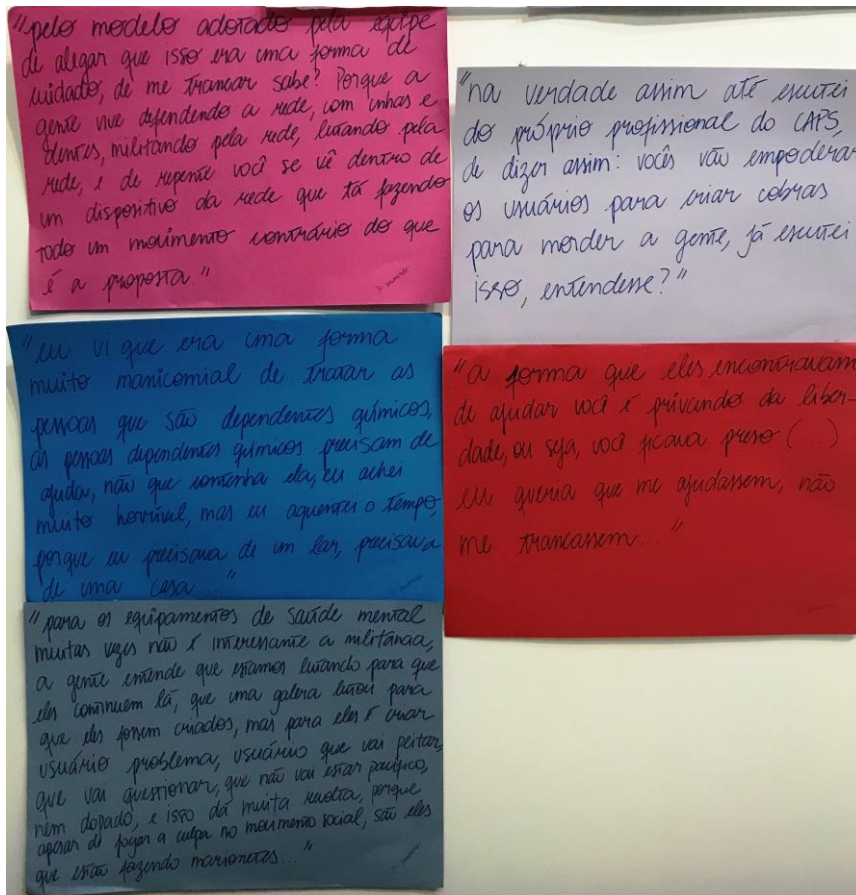 "pelo modelo adotado pela equipe
de alegar que isso era uma forma de
cuidado, de me trancar sabe? Porque a
gente vive defendendo a rede, com unhas e
dentes, militando pela rede, lutando pela
rede, e de repente você se vê dentro de
um dispositivo da rede que tá fazendo
todo um movimento contrário do que
é a proposta."
"eu vi que era uma forma
muito manicomial de tratar as
pessoas que são dependentes químicos,
as pessoas dependentes químicos precisam de
ajuda, não que contenha ela, eu achei
muito horrível, mas eu aguentei o tempo,
porque eu precisava de um lar, precisava
de uma casa..."
"para os equipamentos de saúde mental
muitas vezes não é interessante a militância,
a gente entende que estamos lutando para que
eles continuem lá, que uma galera lutou para
que eles fossem criados, mas para eles é criar
usuário problema, usuário que vai peitar,
que vai questionar, que não vai estar pacífico,
nem dopado, e isso dá muita revolta, porque
apesar de jogar a culpa no movimento social, são eles
que estão fazendo marionetes..."
"na verdade assim até escutei
do próprio profissional do CAPS,
de dizer assim: vocês vão empoderar
os usuários para criar cobras
para morder a gente, já escutei
isso, entendesse?"
"a forma que eles encontravam
de ajudar você é privando da liber-
dade, ou seja, você ficava preso (...)
eu queria que me ajudassem, não
me trancassem..."